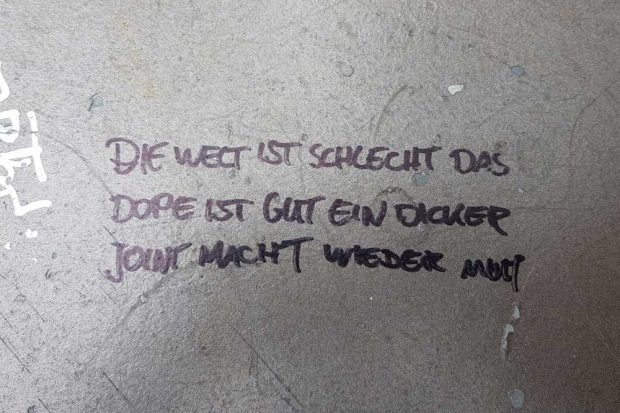 DIE WELT IST SCHLECHT DAS
DOPE IST GUT EIN DICKER
JOINT MACHT WIEDER MUT